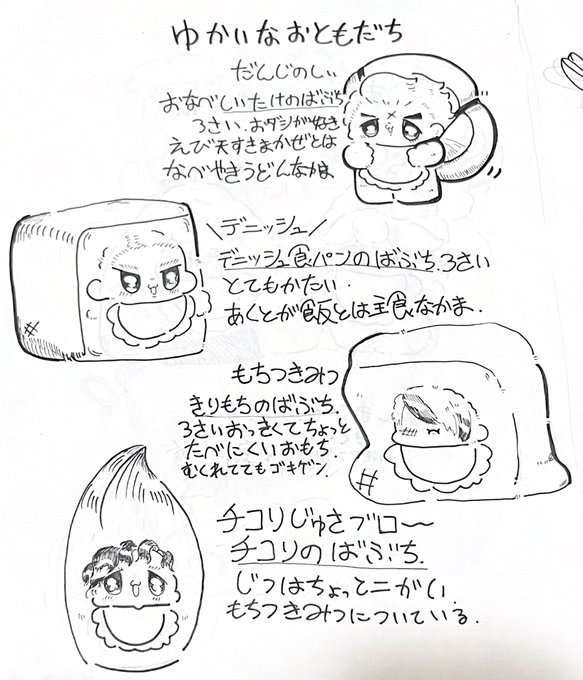 ゆかいなおともだち
だんじのしい
おなべしいたけのばぶち
3さい.おダシが好き
えび天すきまかぜとは
なべやきうどんなかま
\デニッシュ/
デニッシュ食パンのばぶち.3さい
とてもかたい.
あくとが飯とは主食なかま.
もちつきみつ
きりもちのばぶち.
3さいおっきくてちょっと
たべにくいおもち.
むくれててもゴキゲン.
チコリじゅさブロー〜
チコリのばぶち.
じつはちょっとニがい.
もちつきみつについている.